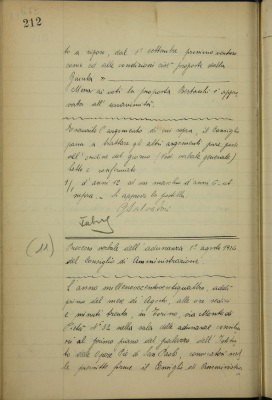 212
to a rigori, dal 1° settembre prossimo venturo
come ed alle condizioni così proposte dalla
Giunta =
Messa ai voti la proposta Bertanti è appro
vata all'unanimità.
Esaurito l'argomento di cui sopra, il Consiglio
passa a trattare gli altri argomenti pure posti
all'ordine del giorno (Vedi verbale generale)
Letto e confermato
1/1 d'anni 12 ed un
sopra. Si approva la
(11)
Processo verbale dell'adunanza 1° agosto 1924
del Consiglio di Amministrazione.
L'anno millenovecentoventiquattro addì
primo del mese di Agosto, alle ore
e minuti trenta, in Torino, via Monte di
Pietà N° 32 nella sala delle adunanze consilia
ri al primo piano del palazzo dell'Istitu
to delle Opere Pie di San Paolo, convocatosi nel
le prescritte forme il Consiglio di Amministra